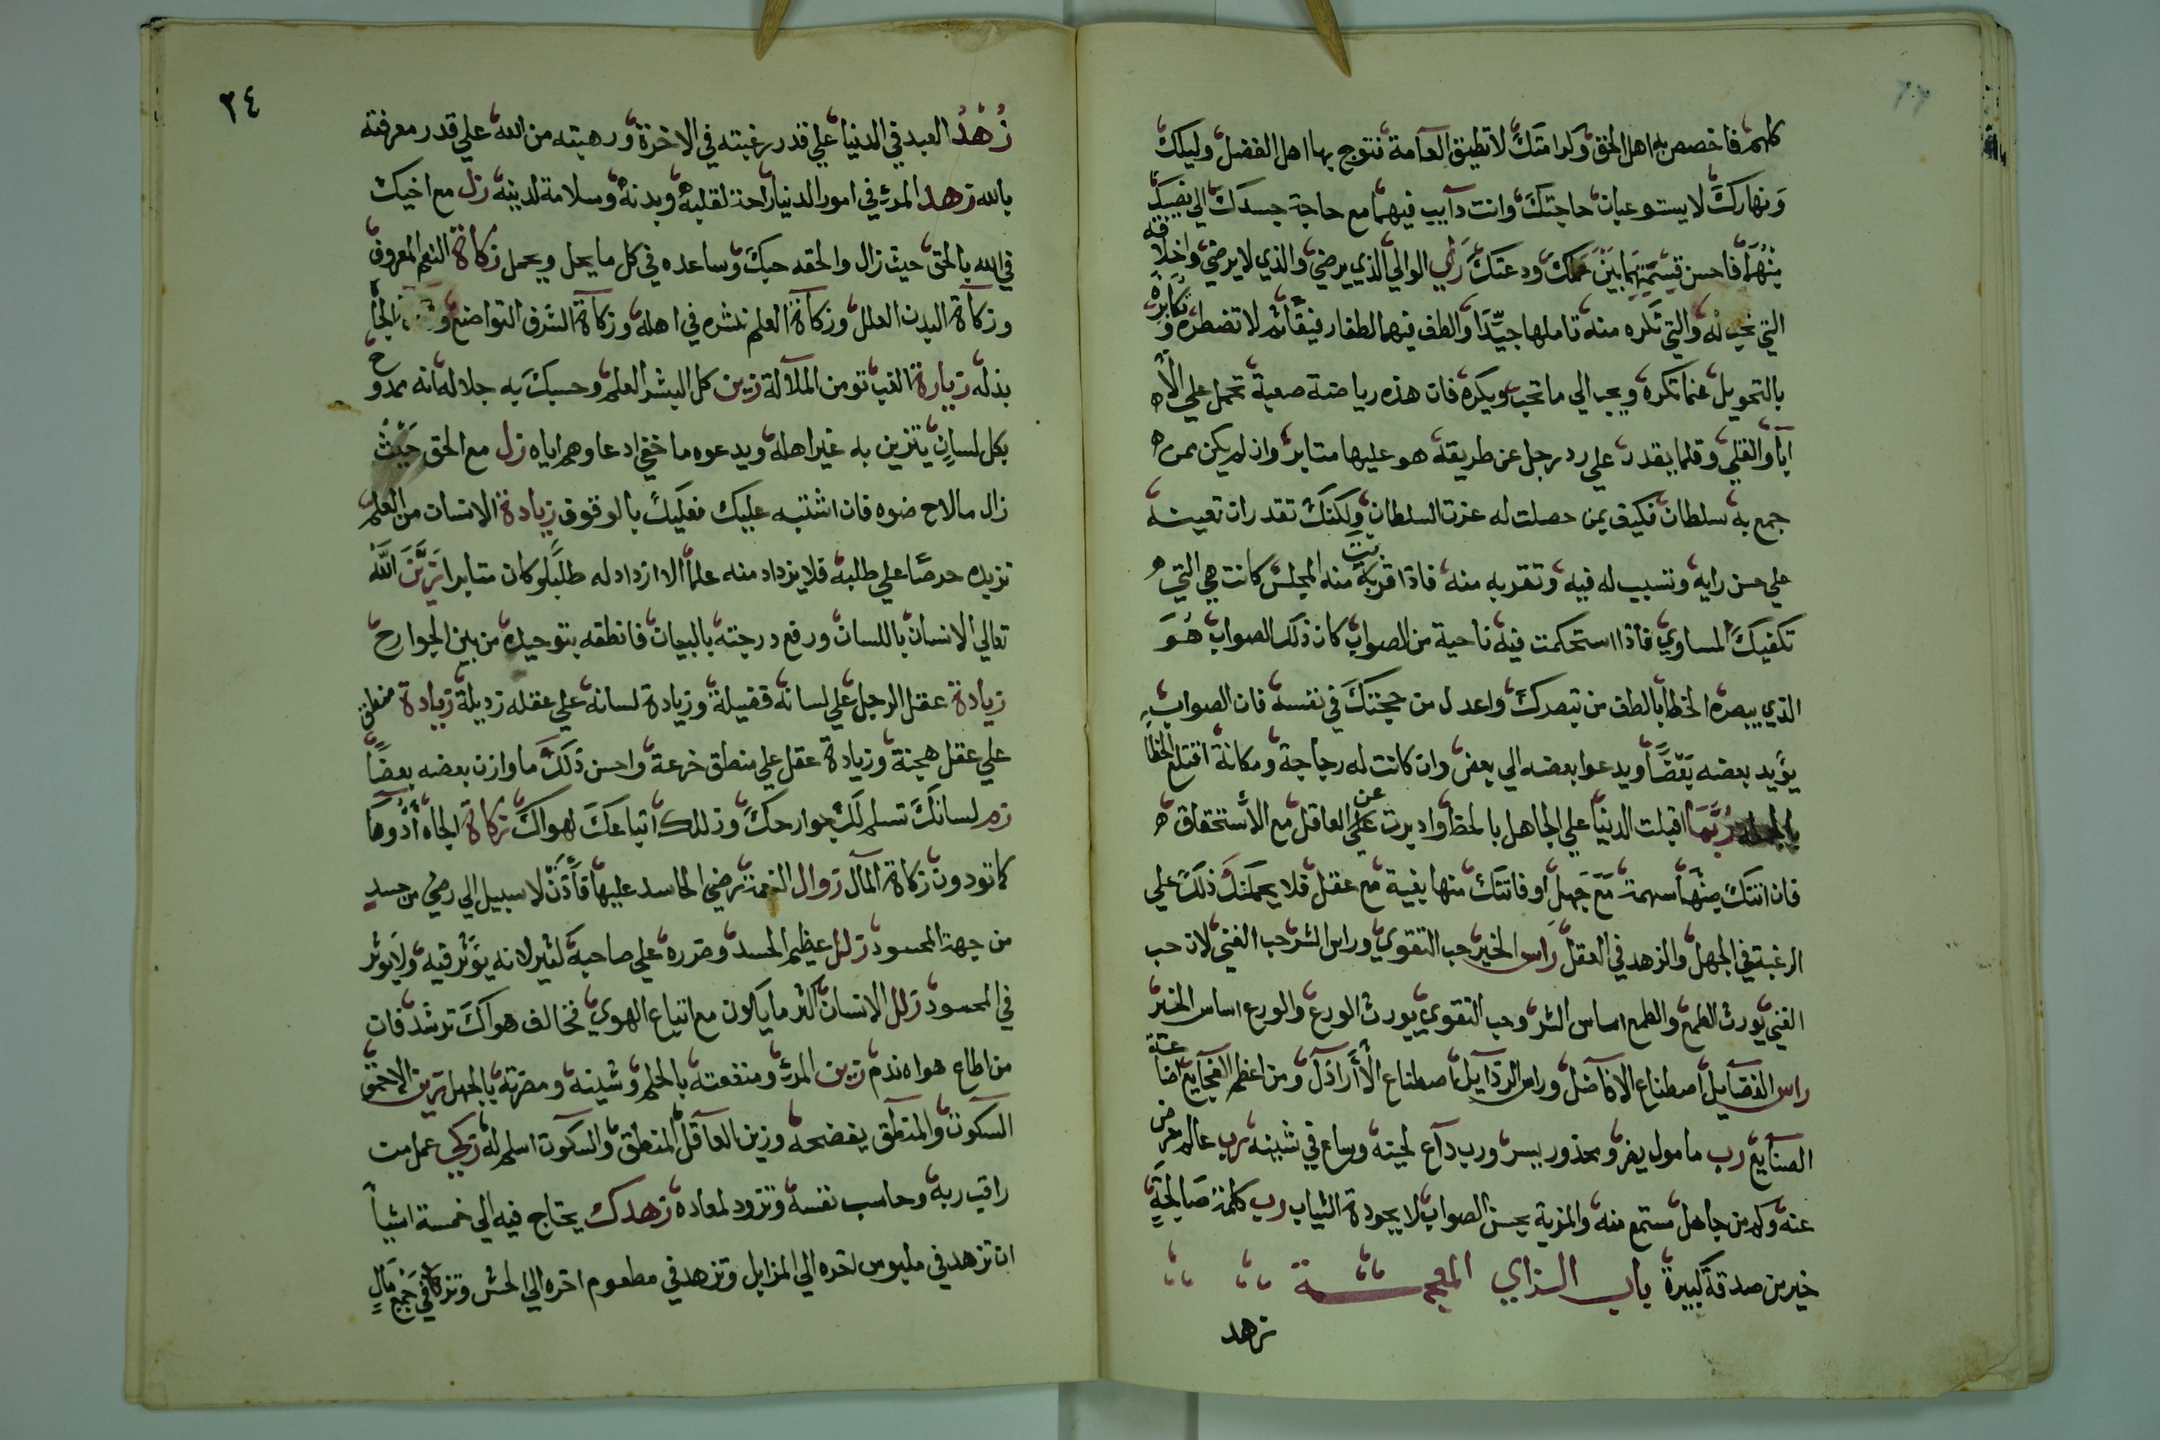 كلهم فاخصص به اهل الحق وكرامتك لا تطيق العامة فتوج بها اهل الفضل وليلك
ونهارك لا يستوعبان حاجتك وانت دآيب فيهما مع حاجة جسدك الي نصيبك
منهما فاحسن قسمتهما بين عملك ودعتك راي الوالي الذي يرضي والذي لا يرضي واخلاقه
التي تحب له والتي تكره منه تاملها جيدا والطف فيهما لا تضطره وتكابره
بالتحويل عما تكره ويجر الي ما تحب ويكره فان هذه رياضة صعبة تحمل علي الا
ابا والقلي وقلما يقدر علي رد رجل عن طريقة هو عليها متابر وان لم يكن ممن
جمع به سلطان فكيف بمن حصلت له عزت السلطان ولكنك تقدر ان تعينه
علي حسن رايه وتسبب له فيه وتقربه منه فاذا قربت منه المحلسن كانت هي التي
تكفيك المساوي فاذا استحكمت فيه ناحية من الصواب كان ذلك الصواب هو
الذي يبصره الخطا بالطف من تبصرك واعدل من حجتك في نفسه فان الصواب
يؤيد بعضه بعضا ويدعوا بعضه الي بعض وان كانت له رجاجة ومكانة اقتلع الخطا
ربما اقبلت الدنيا علي الجاهل بالحظ وادبرت عن العاقل مع الاستحقاق
فان اتتك منها سهمة مع جهل او فاتتك منها بغية مع عقل فلا يحملنك ذلك علي
الرغبة في الجهل والزهد في العقل راس الخير حب التقوي وراس الشر حب الغني لان حب
الغني يورث الطمع والطمع اساس الشر وحب التقوي يورث الورع والورع اساس الخير
راس الفضايل اصطناع الافاضل وراس الردايل اصطناع الاراذل ومن اعظم الفجايع اضاعة
الصنايع رب مامول يضر ومحذور يسر ورب داع لحينه وساع في شينه رب عالم مرض
عنه وكم من جاهل مستمع منه والمزية بحسن الصواب لا بجودة الثياب رب كلمة صالحة
خير من صدقة كبيرة باب الزاي المعجمة
زهد
٢٤
زهد العبد في الدنيا علي قدر رغبته في الاخرة ورهبته من الله علي قدر معرفته
بالله زهد المرء في امور الدنيا راحة لقلبه وبدنه وسلامة لدينه زل مع اخيك
في الله بالحق حيث زال والحقه حبك وساعده في كل ما يحل ويجمل زكاة النعم المعروف
وزكاة البدن العلل وزكاة العلم نشره في اهله وزكاة الشرف التواضع الجا
بذله زيارة الغب تومن الملالة زين كل البشر العلم وحسبك به جلاله انه ممدوح
بكل لسان يتزين به غير اهله ويدعوه ما خفي ادعاوهم اياه زل مع الحق حيث
زال ما لاح ضوه فان اشتبه عليك فعليك بالوقوف زيادة الانسان من العلم
تزيده حرصا علي طلبه فلا يزداد منه علما الا ازداد له طلبا وكان متابرا زين الله
تعالي الانسان باللسان ورفع درجته بالبيان فانطقه بتوحيده من بين الجوارح
زيادة عقل الرجل علي لسانه فضيلة وزيادة لسانه علي عقله رديلة زيادة منطق
علي عقل هجنة وزيادة عقل علي منطق خرعة واحسن ذلك ما وازن بعضه بعضا
زم لسانك تسلم لك جوارحك وزللك اتباعك لهواك زكاة الجاه أدوها
كما تودون زكاة المال زوال النعمة رضي الحاسد عليها فأذن لا سبيل الي رضي من حسد
من جهة المحسود زلل عظيم الحسد وضرره علي صاحبه كثير لانه يؤثر فيه ولا يوثر
في المحسود زلل الانسان اكثر ما يكون مع اتباع الهوي فخالف هواك ترشد فان
من اطاع هواه ندم زين المرء ومنفعته بالحلم وشينه ومضرته بالجهل زين الاحمق
السكوت والمنطق يفضحه وزين العاقل المنطق والسكوت اسلم له زكي عمل من
راقب ربه وحاسب نفسه وتزود لمعاده زهدك يحتاج فيه الي خمسة اشيا
ان تزهد في ملبوس اخره الي المزابل وتزهد في مطعوم اخره الي الحش وتزهد في جمع مال